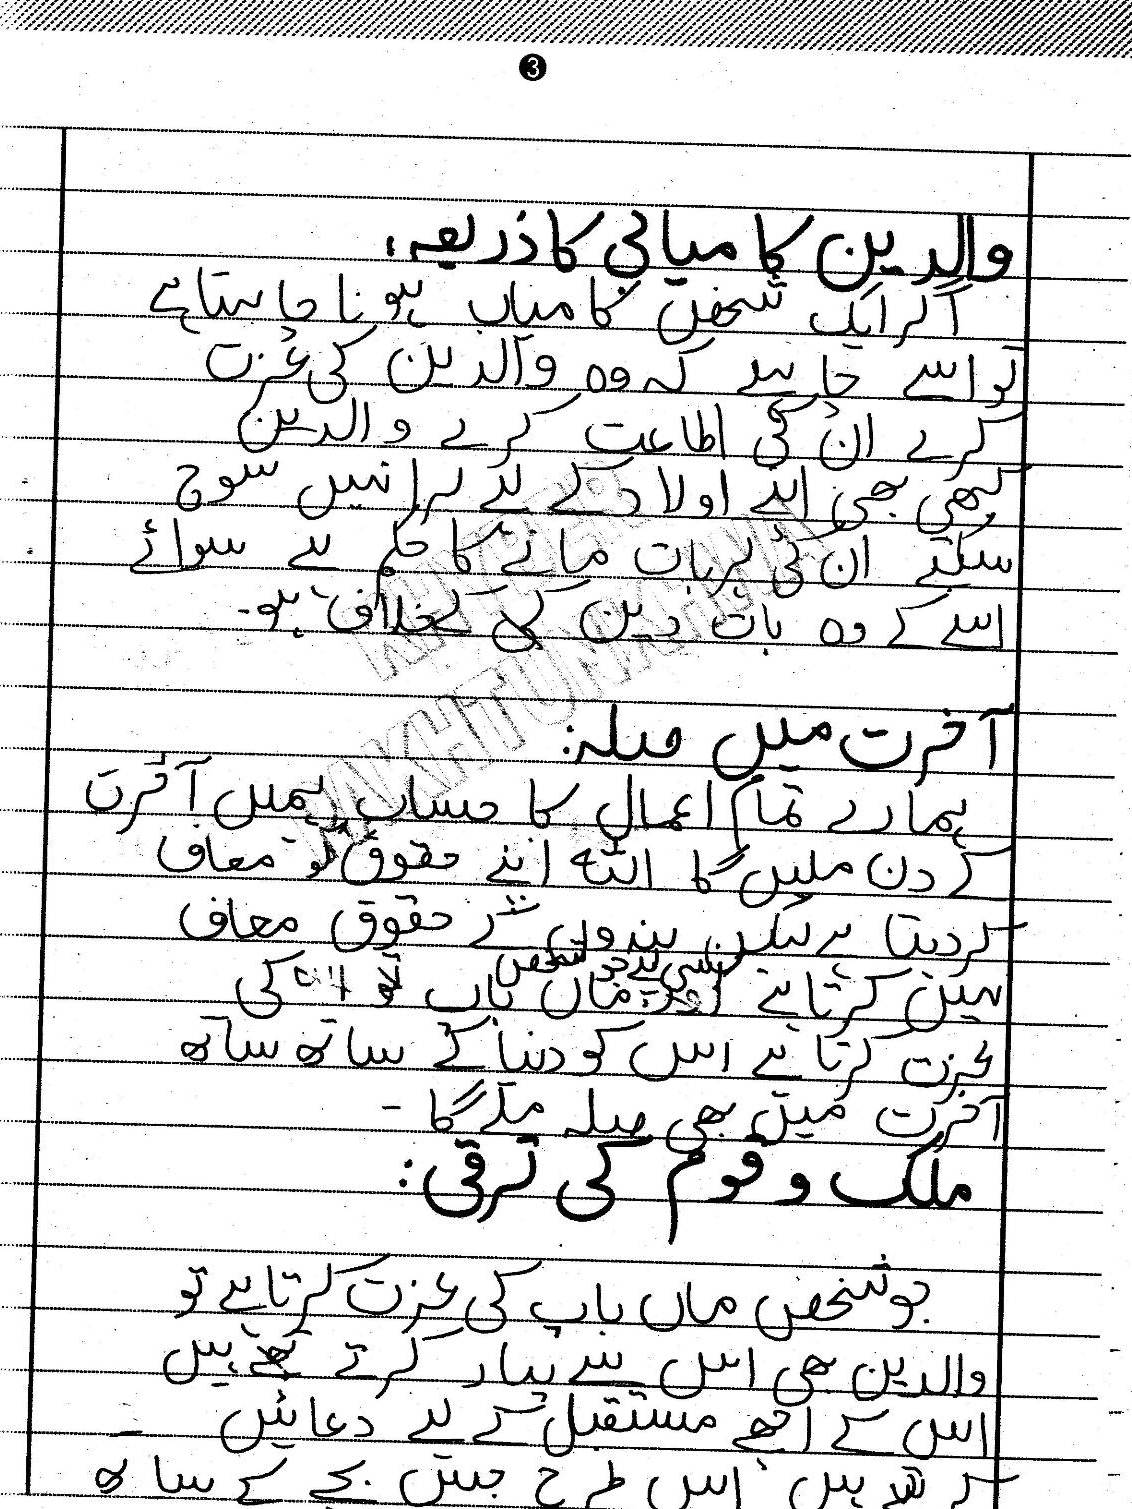 3
والدین کامیابی کا ذریعہ:
اگر ایک شخص کامیاب ہونا چاہتا ہے
تو اسے چاہیے کہ وہ والدین کی عزت
کرے ان کی اطاعت کرے والدین
کبھی بھی اپنے اولاد کے لیے برا نہیں سوچ
سکتے ان کی ہر بات ماننے کا حکم ہے سوائے
اسکے کے وہ بات دین کی کے خلاف ہو۔
KHYBER
PAKHTUNKHWA
آخرت میں صلہ:
ہمارے تمام اعمال کا حساب ہمیں آخرت
کے دن ملیں گا اللہ اپنے حقوق تو معاف
کر دیتا ہے لیکن بندوں کے حقوق معاف
نہیں کرتا ہے اسی لیے جو شخص ماں باپ کی
عزت کرتا ہے اس کو دنیا کے ساتھ ساتھ
آخرت میں بھی صلہ ملے گا -
ملک و قوم کی ترقی:
جو شخص ماں باپ کی عزت کرتا ہے تو
والدین بھی اس سے پیار کرتے ہیں
اس کے اچھے مستقبل کے لیے دعائیں
کرتے ہیں اس طرح جس بچے کے ساتھ